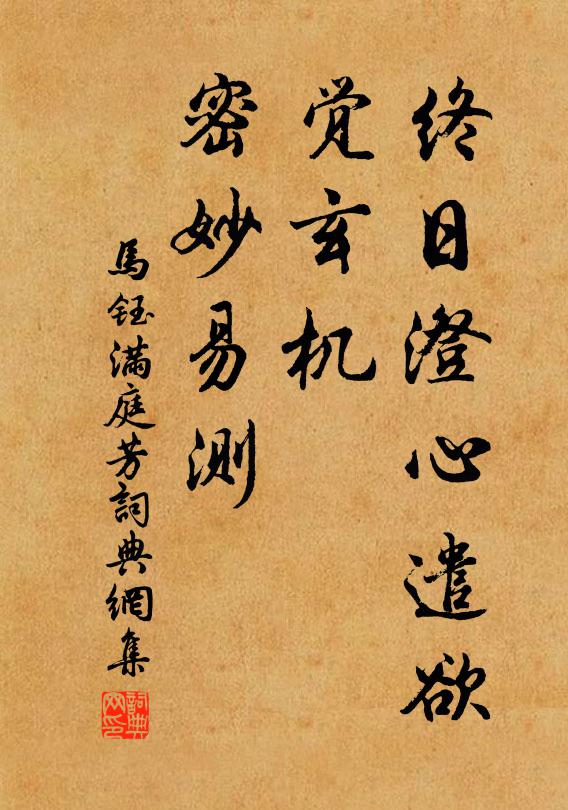 终日澄心遣欲
觉玄机
密妙易测
馬鈺满庭芳詞典網集
詞典网印